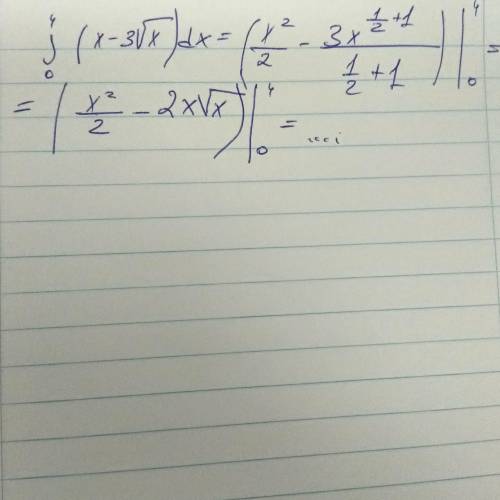 ∫₀⁴ (x-3√x)dx = (x²/2 - 3x^(1/2+1)/(1/2+1)) |₀⁴ =
= (x²/2 - 2x√x) |₀⁴ = ....;